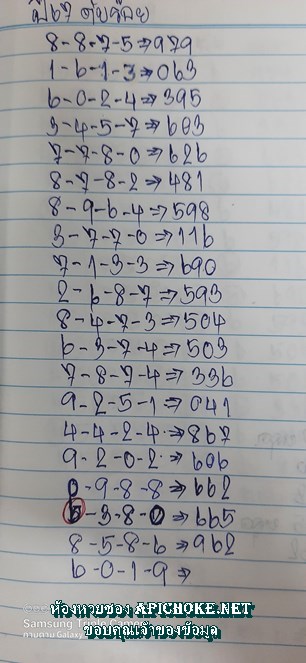 ปี67
8-8-7-5⇒979
1-6-1-3⇒063
6-0-2-4⇒395
3-4-5-7⇒603
7-7-8-0⇒626
8-7-8-2⇒481
8-9-6-4⇒598
3-7-7-0⇒116
7-1-3-3⇒690
2-6-8-7⇒593
8-4-7-3⇒504
6-3-7-4⇒503
7-8-7-4⇒336
9-2-5-1⇒041
4-4-2-4⇒867
9-2-0-2⇒606
0-9-8-8⇒662
6-3-8-0⇒665
8-5-8-6⇒962
6-0-1-9⇒
ห้องหวยซอง APICHOKE.NET
Samsung Triple Camera
ขอบคุณเจ้าของข้อมูล